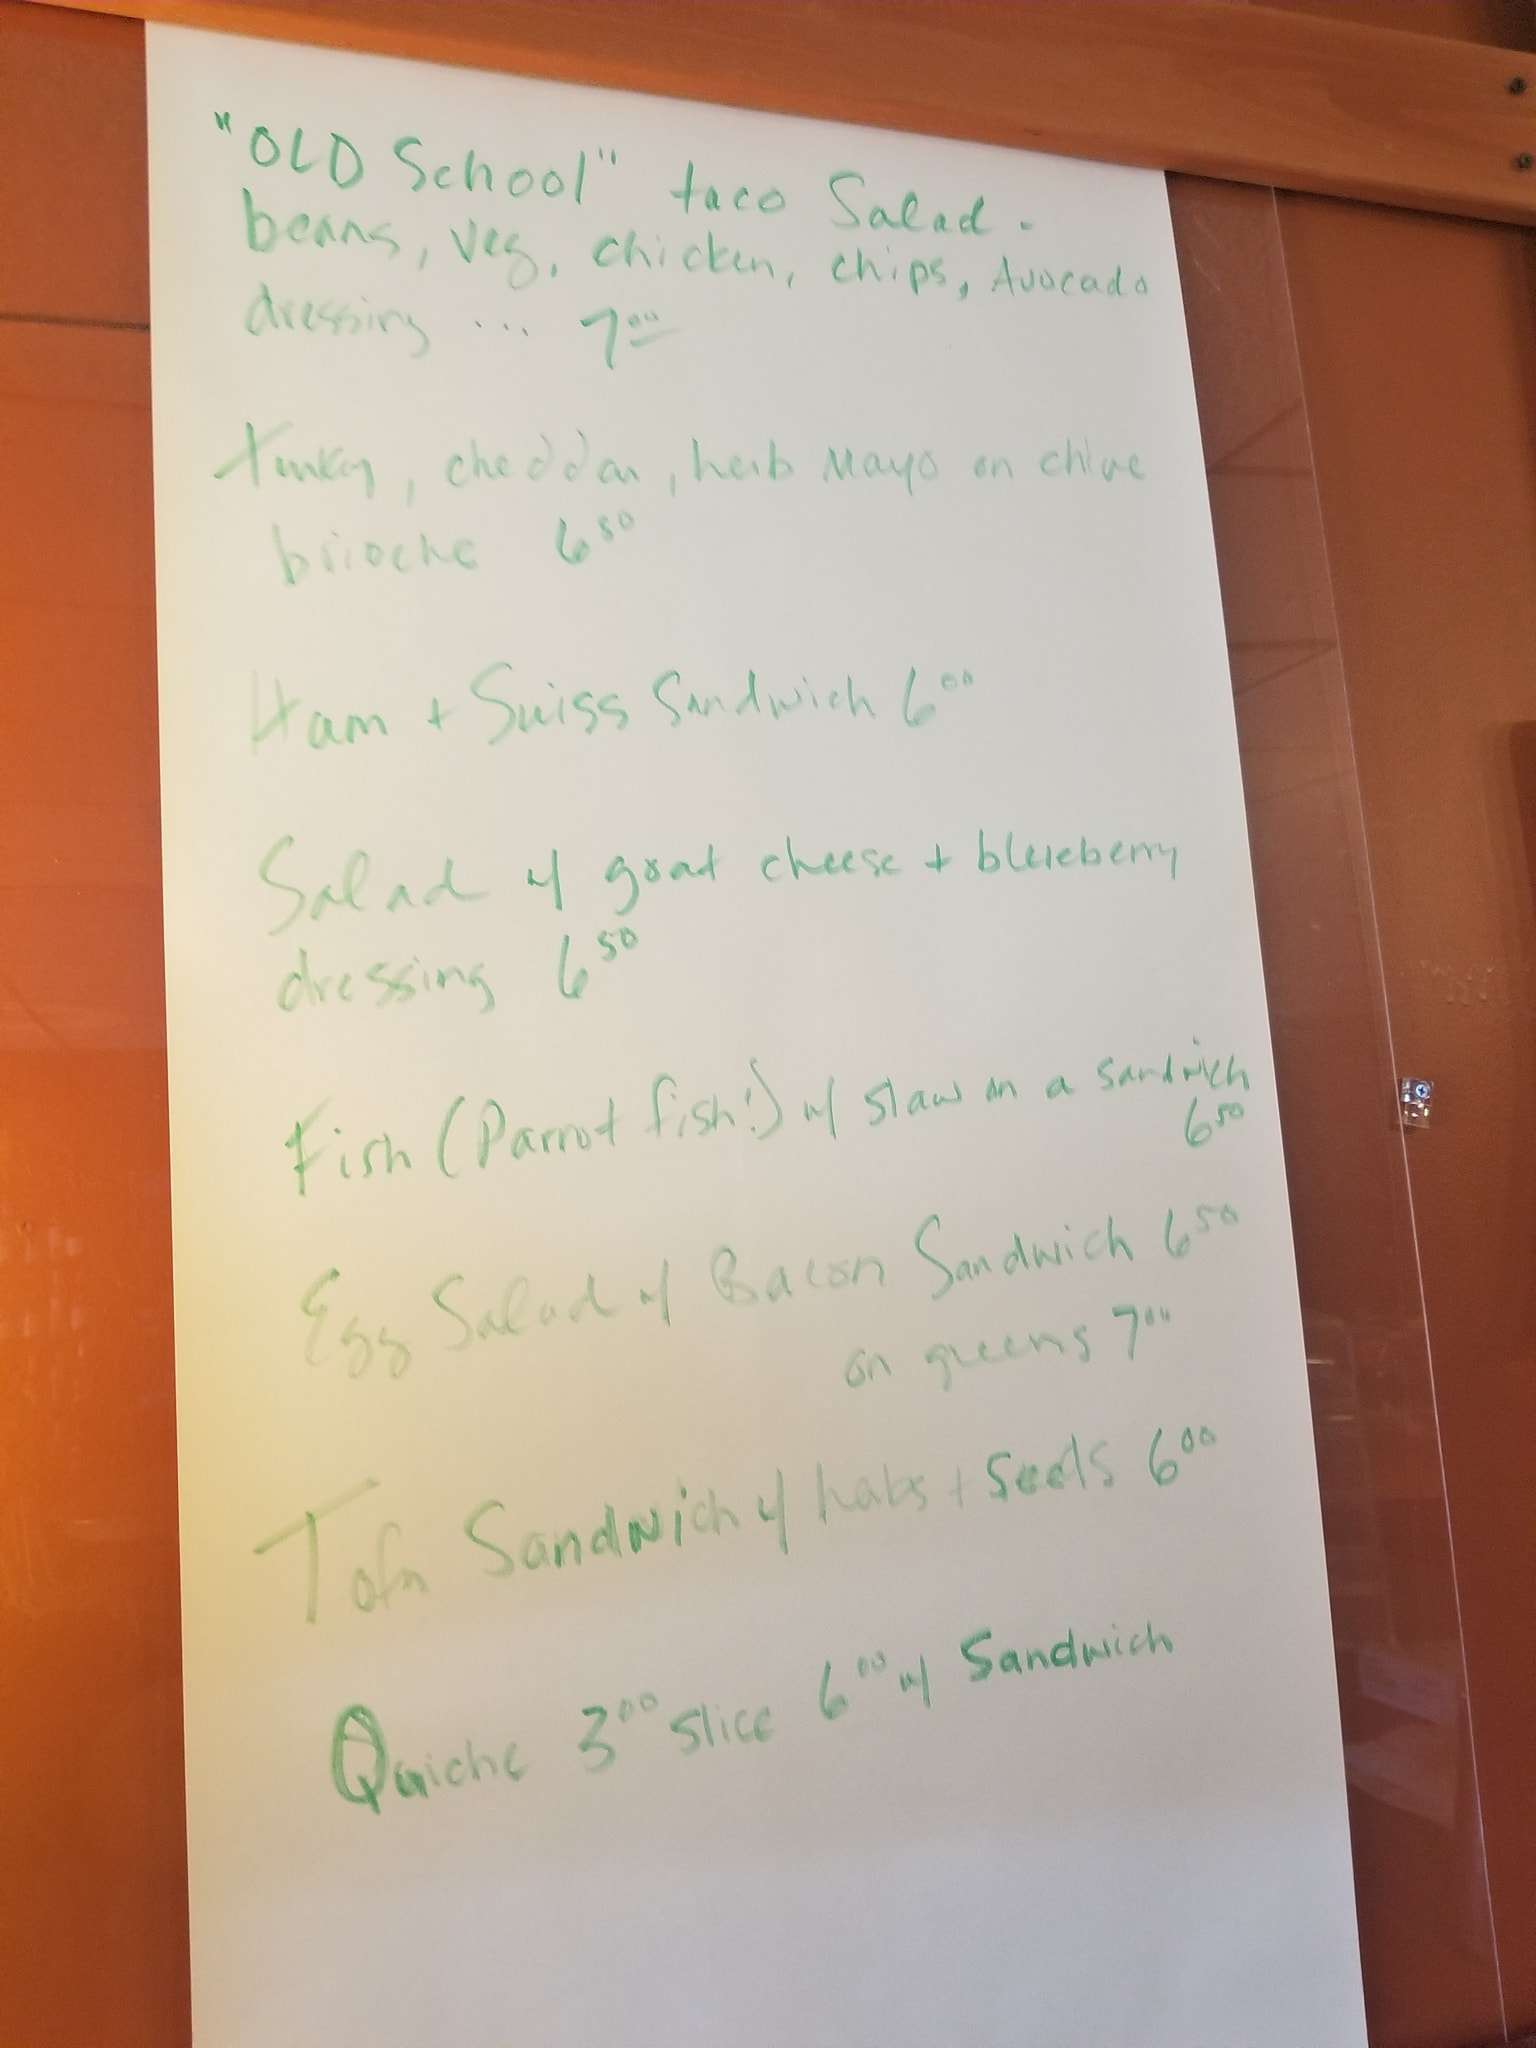 "OLD School" taco Salad -
beans, veg, chicken, chips, Avocado
dressing ... 7.00
Turkey, cheddar, herb Mayo on chive
brioche 6.50
Ham + Swiss Sandwich 6.00
Salad w/ goat cheese + blueberry
dressing 6.50
Fish (Parrot fish!) w/ slaw on a sandwich
6.50
Egg Salad w/ Bacon Sandwich 6.50
on greens 7.00
Tofu Sandwich w/ + Seeds 6.00
Quiche 3.00 slice 6.00 w/ Sandwich